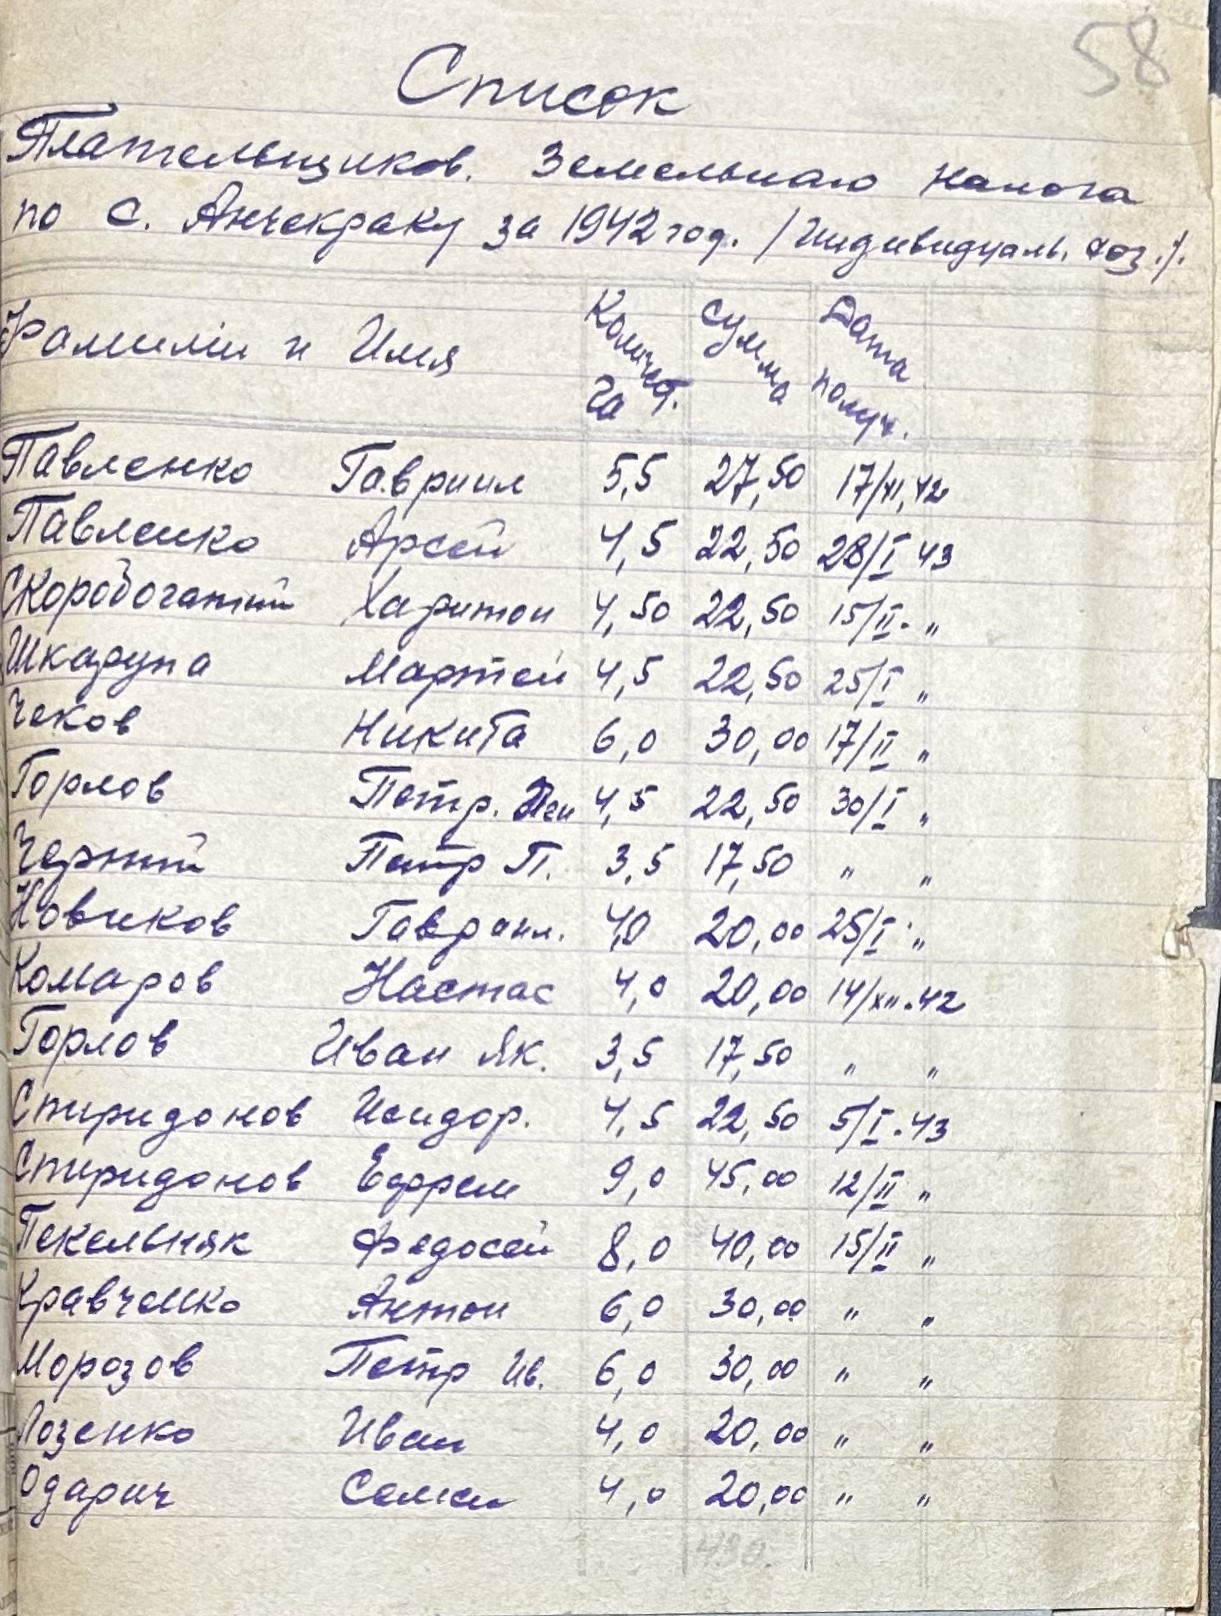 58
Список
Плательщиков. Земельнаго налога
по с. Анчекраку за 1942 год. /Индивидуаль. хоз./.
Фамилии и Имя Количест. га Сумма Дата получ.
Павленко Гавриил 5,5 27,50 17/XI,42
Павленко Арсей 4,5 22,50 28/I 43
Скоробогатий Харитон 4,50 22,50 15/II. "
Шкарупа Мартей 4,5 22,50 25/I "
Чеков Никита 6,0 30,00 17/II "
Горлов Петр. 4,5 22,50 30/I "
Черний Петр П. 3,5 17,50 " "
Новиков Гавриил. 4,0 20,00 25/I "
Комаров Настас 4,0 20,00 14/XII.42
Горлов Иван Як. 3,5 17,50 " "
Спиридонов Исидор. 4,5 22,50 5/I.43
Спиридонов Ефрем 9,0 45,00 12/II "
Пекельняк Федосей 8,0 40,00 15/II "
Кравченко Антон 6,0 30,00 " "
Морозов Петр Ив. 6,0 30,00 " "
Лозенко Иван 4,0 20,00 " "
Одарич Семен 4,0 20,00 " "
430.